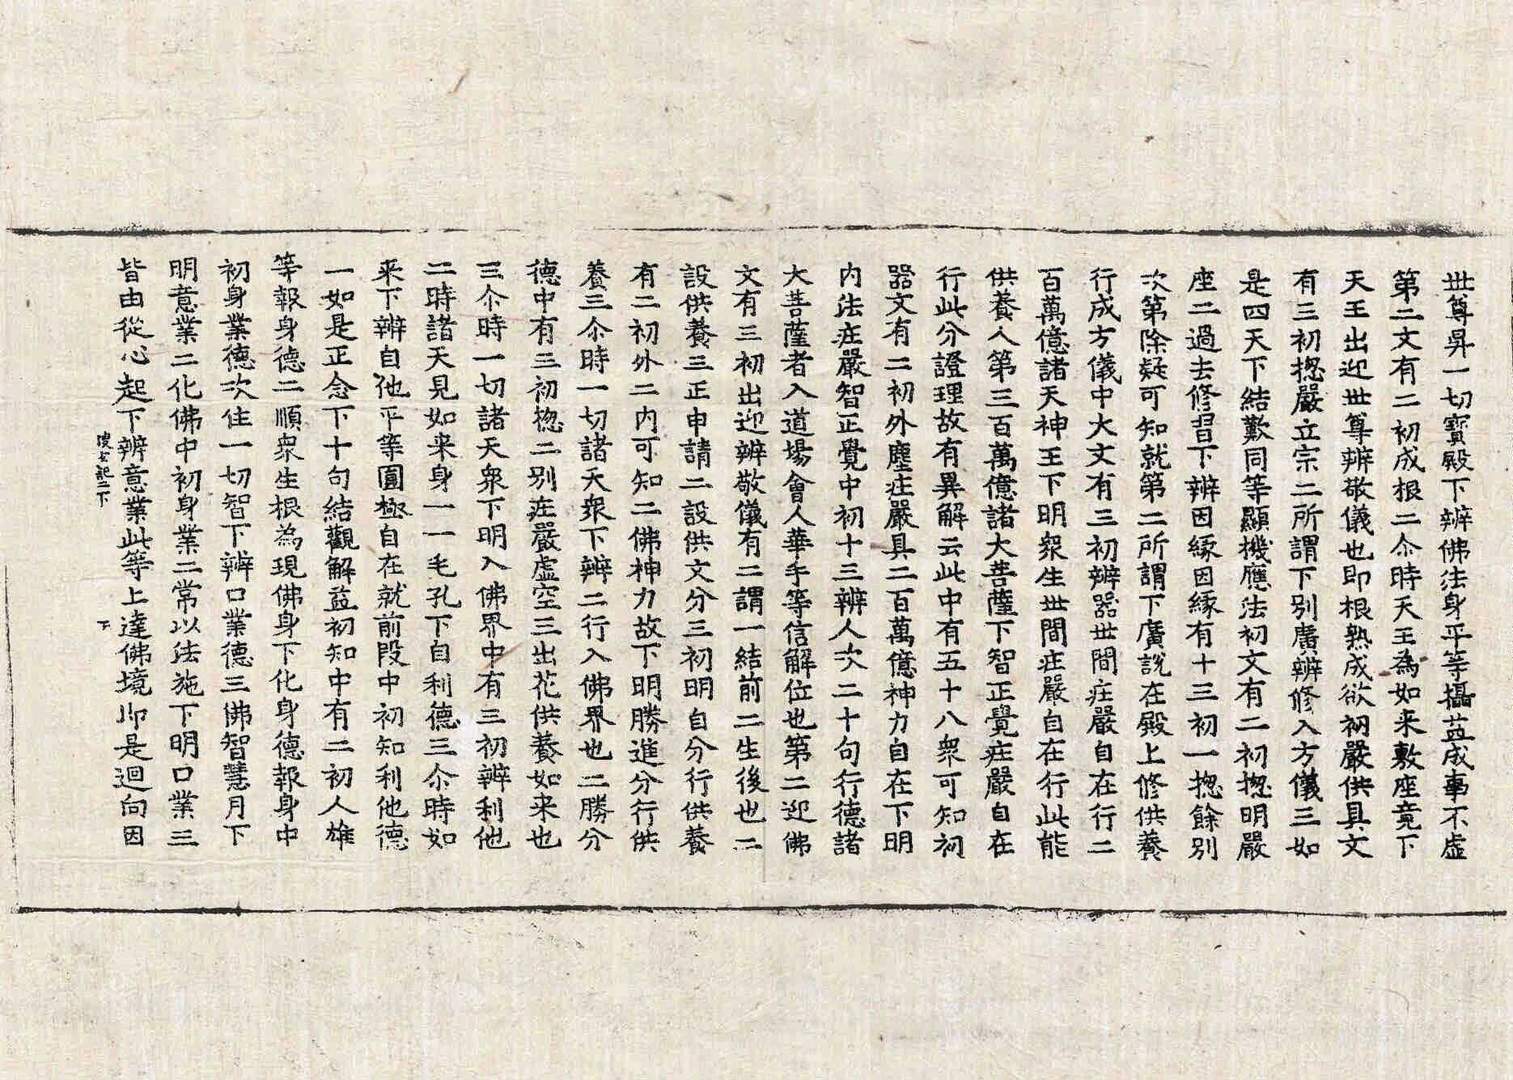 世尊昇一切寳殿下辨佛法身平等攝益成事不虛
第二文有二初成根二尒時天王為如来敷座竟下
天王出迎世尊辨敬儀也即根熟成欲初嚴供具文
有三初揔嚴立宗二所謂下別廣辨修入方儀三如
是四天下結歎同等顯機應法初文有二初揔明嚴
座二過去修習下辨因緣因緣有十三初一揔餘別
次第除疑可知就第二所謂下廣說在殿上修供養
行成方儀中大文有三初辨器世間庄嚴自在行二
百萬億諸天神王下明衆生世間庄嚴自在行此能
供養人第三百萬億諸大菩薩下智正覺庄嚴自在
行此分證理故有異解云此中有五十八衆可知初
器文有二初外塵庄嚴具二百萬億神力自在下明
内法庄嚴智正覺中初十三辨人次二十句行德諸
大菩薩者入道場會人華手等信解位也第二迎佛
文有三初出迎辨敬儀有二謂一結前二生後也二
設供養三正申請二設供文分三初明自分行供養
有二初外二内可知二佛神力故下明勝進分行供
養三尒時一切諸天衆下辨二行入佛界也二勝分
德中有三初揔二別庄嚴虛空三出花供養如来也
三尒時一切諸天衆下明入佛界中有三初辨利他
二時諸天見如来身一一毛孔下自利德三尒時如
来下辨自他平等圓極自在就前段中初知利他德
一如是正念下十句結觀解益初知中有二初人雄
等報身德二順衆生根為現佛身下化身德報身中
初身業德次住一切智下辨口業德三佛智慧月下
明意業二化佛中初身業二常以法施下明口業三
皆由從心起下辨意業此等上達佛境即是迴向因
下